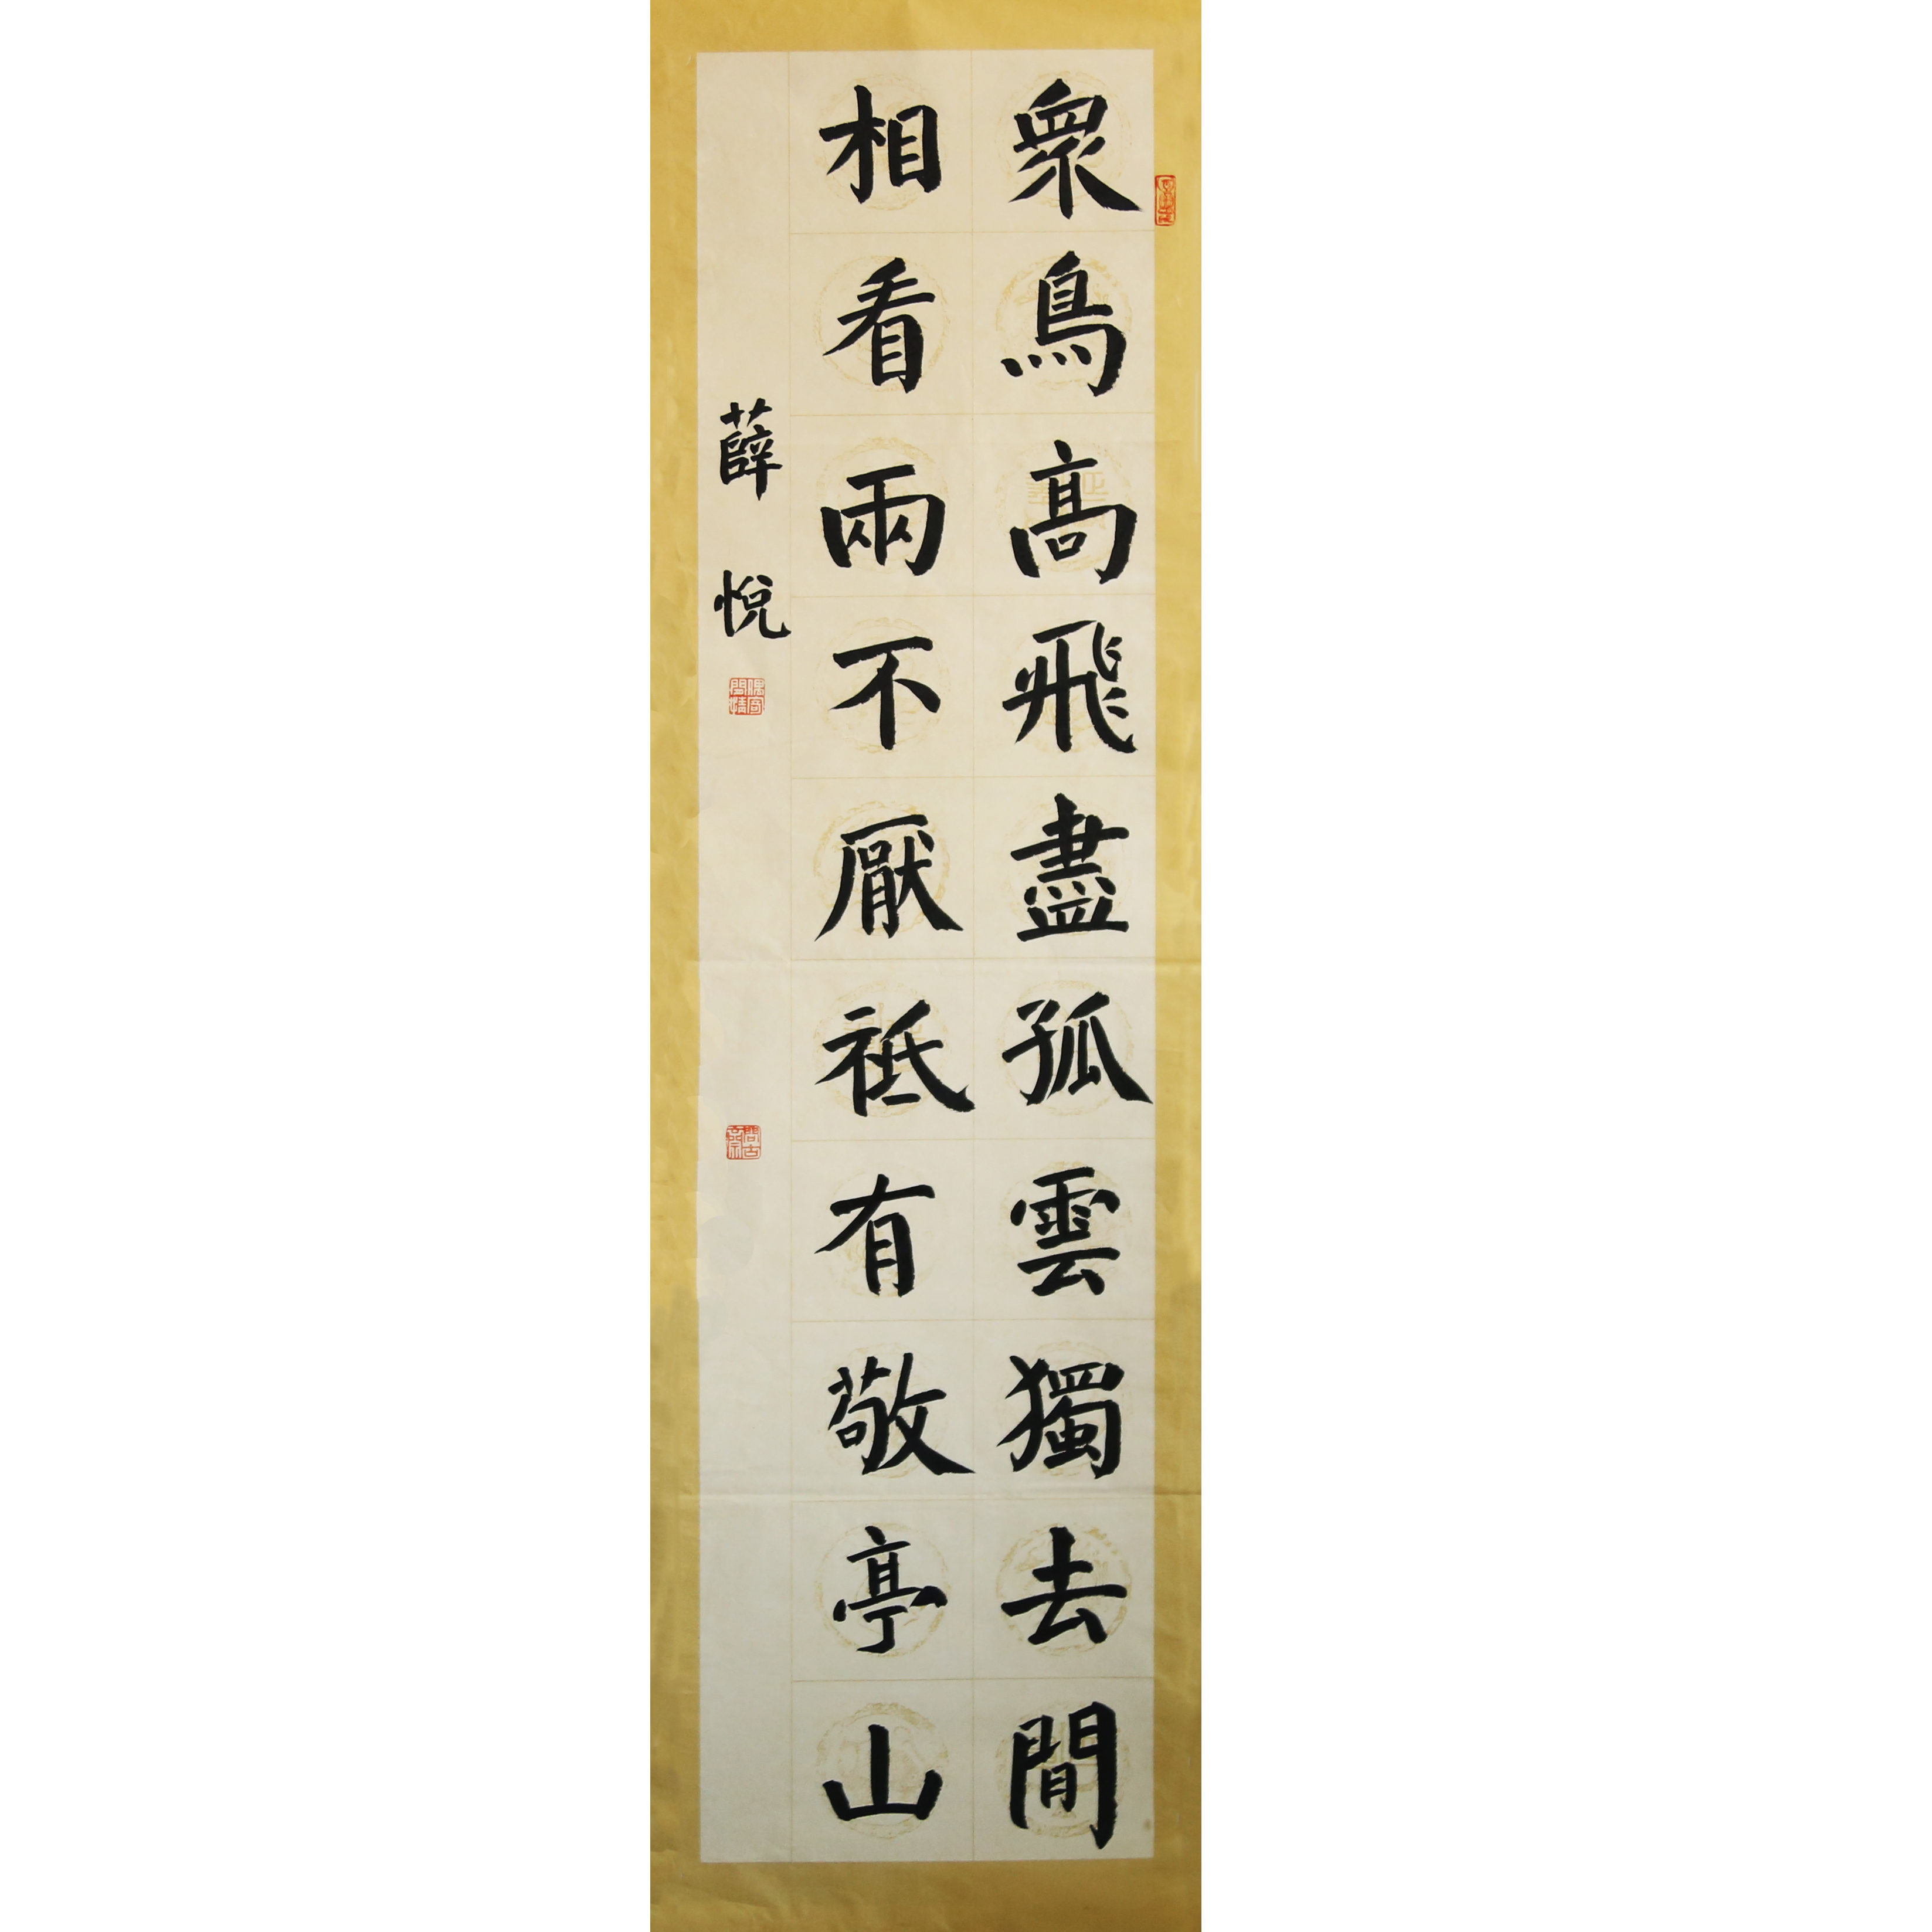 衆鳥髙飛盡孤雲獨去閒
相看兩不厭祇有敬亭山
薛悅